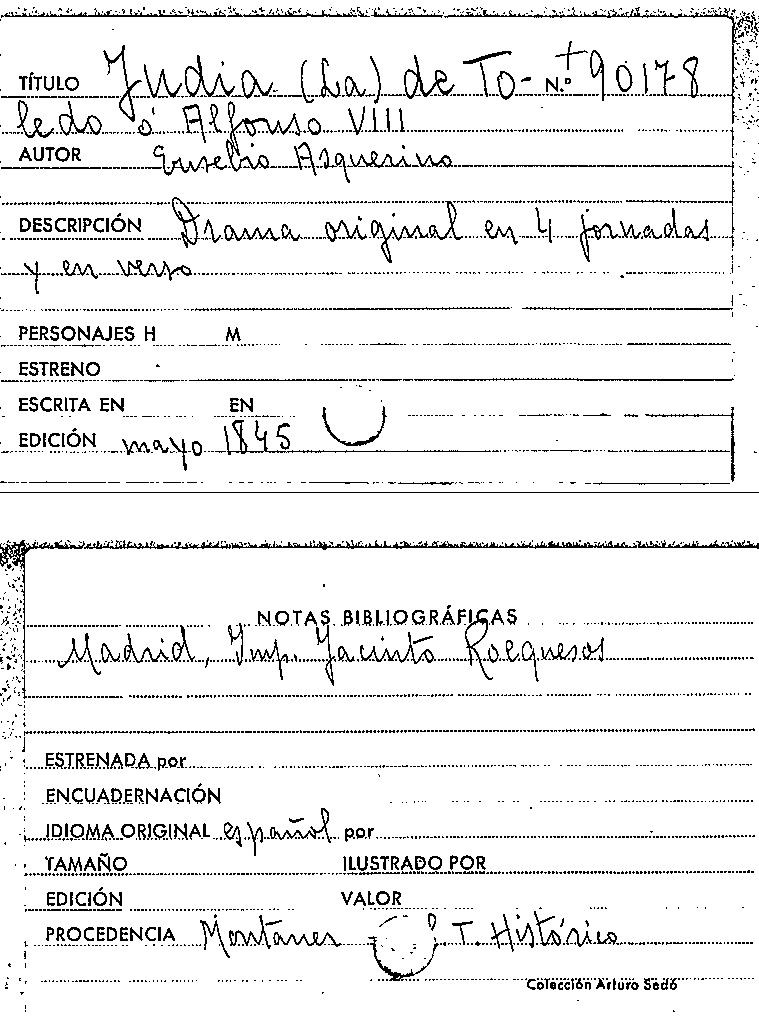 TÍTULO Judia (La) de To- N.º 90178
ledo ó Alfonso VIII
AUTOR Eusebio Asquerino
DESCRIPCIÓN Drama original en 4 jornadas
y en verso
PERSONAJES H M
ESTRENO
ESCRITA EN EN
EDICIÓN mayo 1845
NOTAS BIBLIOGRÁFICAS
Madrid, Imp. Jacinto
ESTRENADA por
ENCUADERNACIÓN
IDIOMA ORIGINAL español por
TAMAÑO ILUSTRADO POR
EDICIÓN VALOR
PROCEDENCIA Montaner T. Histórico
Colección Arturo Sedó